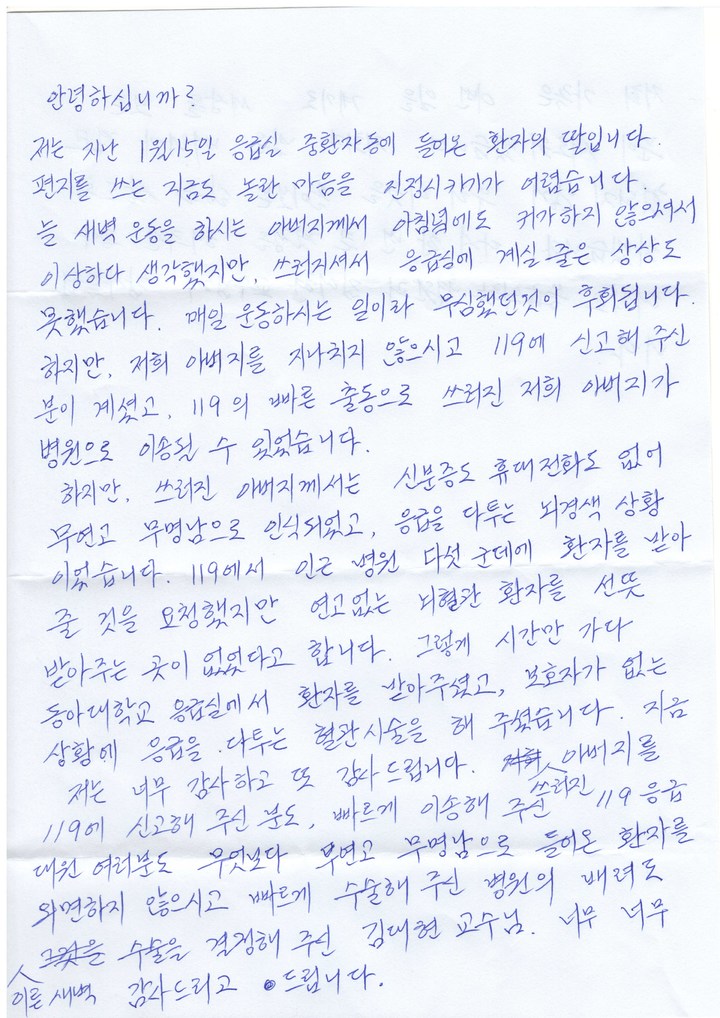 안녕하십니까?
저는 지난 1월15일 응급실 중환자동에 들어온 환자의 딸입니다.
편지를 쓰는 지금도 놀란 마음을 진정시키기가 어렵습니다
늘 새벽 운동을 하시는 아버지께서 아침녘에도 귀가하지 않으셔서
이상하다 생각했지만, 쓰러지셔서 응급실에 계실 줄은 상상도
못했습니다. 매일 운동하시는 일이라 무심했던것이 후회됩니다.
하지만, 저희 아버지를 지나치지 않으시고 119에 신고해 주신
분이 계셨고, 119의 빠른 출동으로 쓰러진 저희 아버지가
병원으로 이송될 수 있었습니다.
하지만, 쓰러진 아버지께서는 신분증도 휴대전화도 없어
무연고 무명남으로 인식되었고, 응급을 다투는 뇌경색 상황
이었습니다. 119에서 인근 병원 다섯 군데에 환자를 받아
줄 것을 요청했지만 연고없는 뇌혈관 환자를 선뜻
받아주는 곳이 없었다고 합니다. 그렇게 시간만 가다
동아대학교 응급실에서 환자를 받아주셨고, 보호자가 없는
상황에 응급을 다투는 혈관시술을 해 주셨습니다. 지금
저는 너무 감사하고 또 감사 드립니다. 쓰러진 아버지를
119에 신고해 주신 분도, 빠르게 이송해 주신 119 응급
대원 여러분도 무엇보다 무연고 무명남으로 들어온 환자를
외면하지 않으시고 빠르게 수술해 주신 병원의 배려도
이른 새벽 수술을 결정해 주신 김대현 교수님. 너무 너무
감사드리고 드립니다.